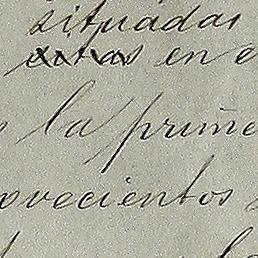 situadas
en e
la prime
ovecientos